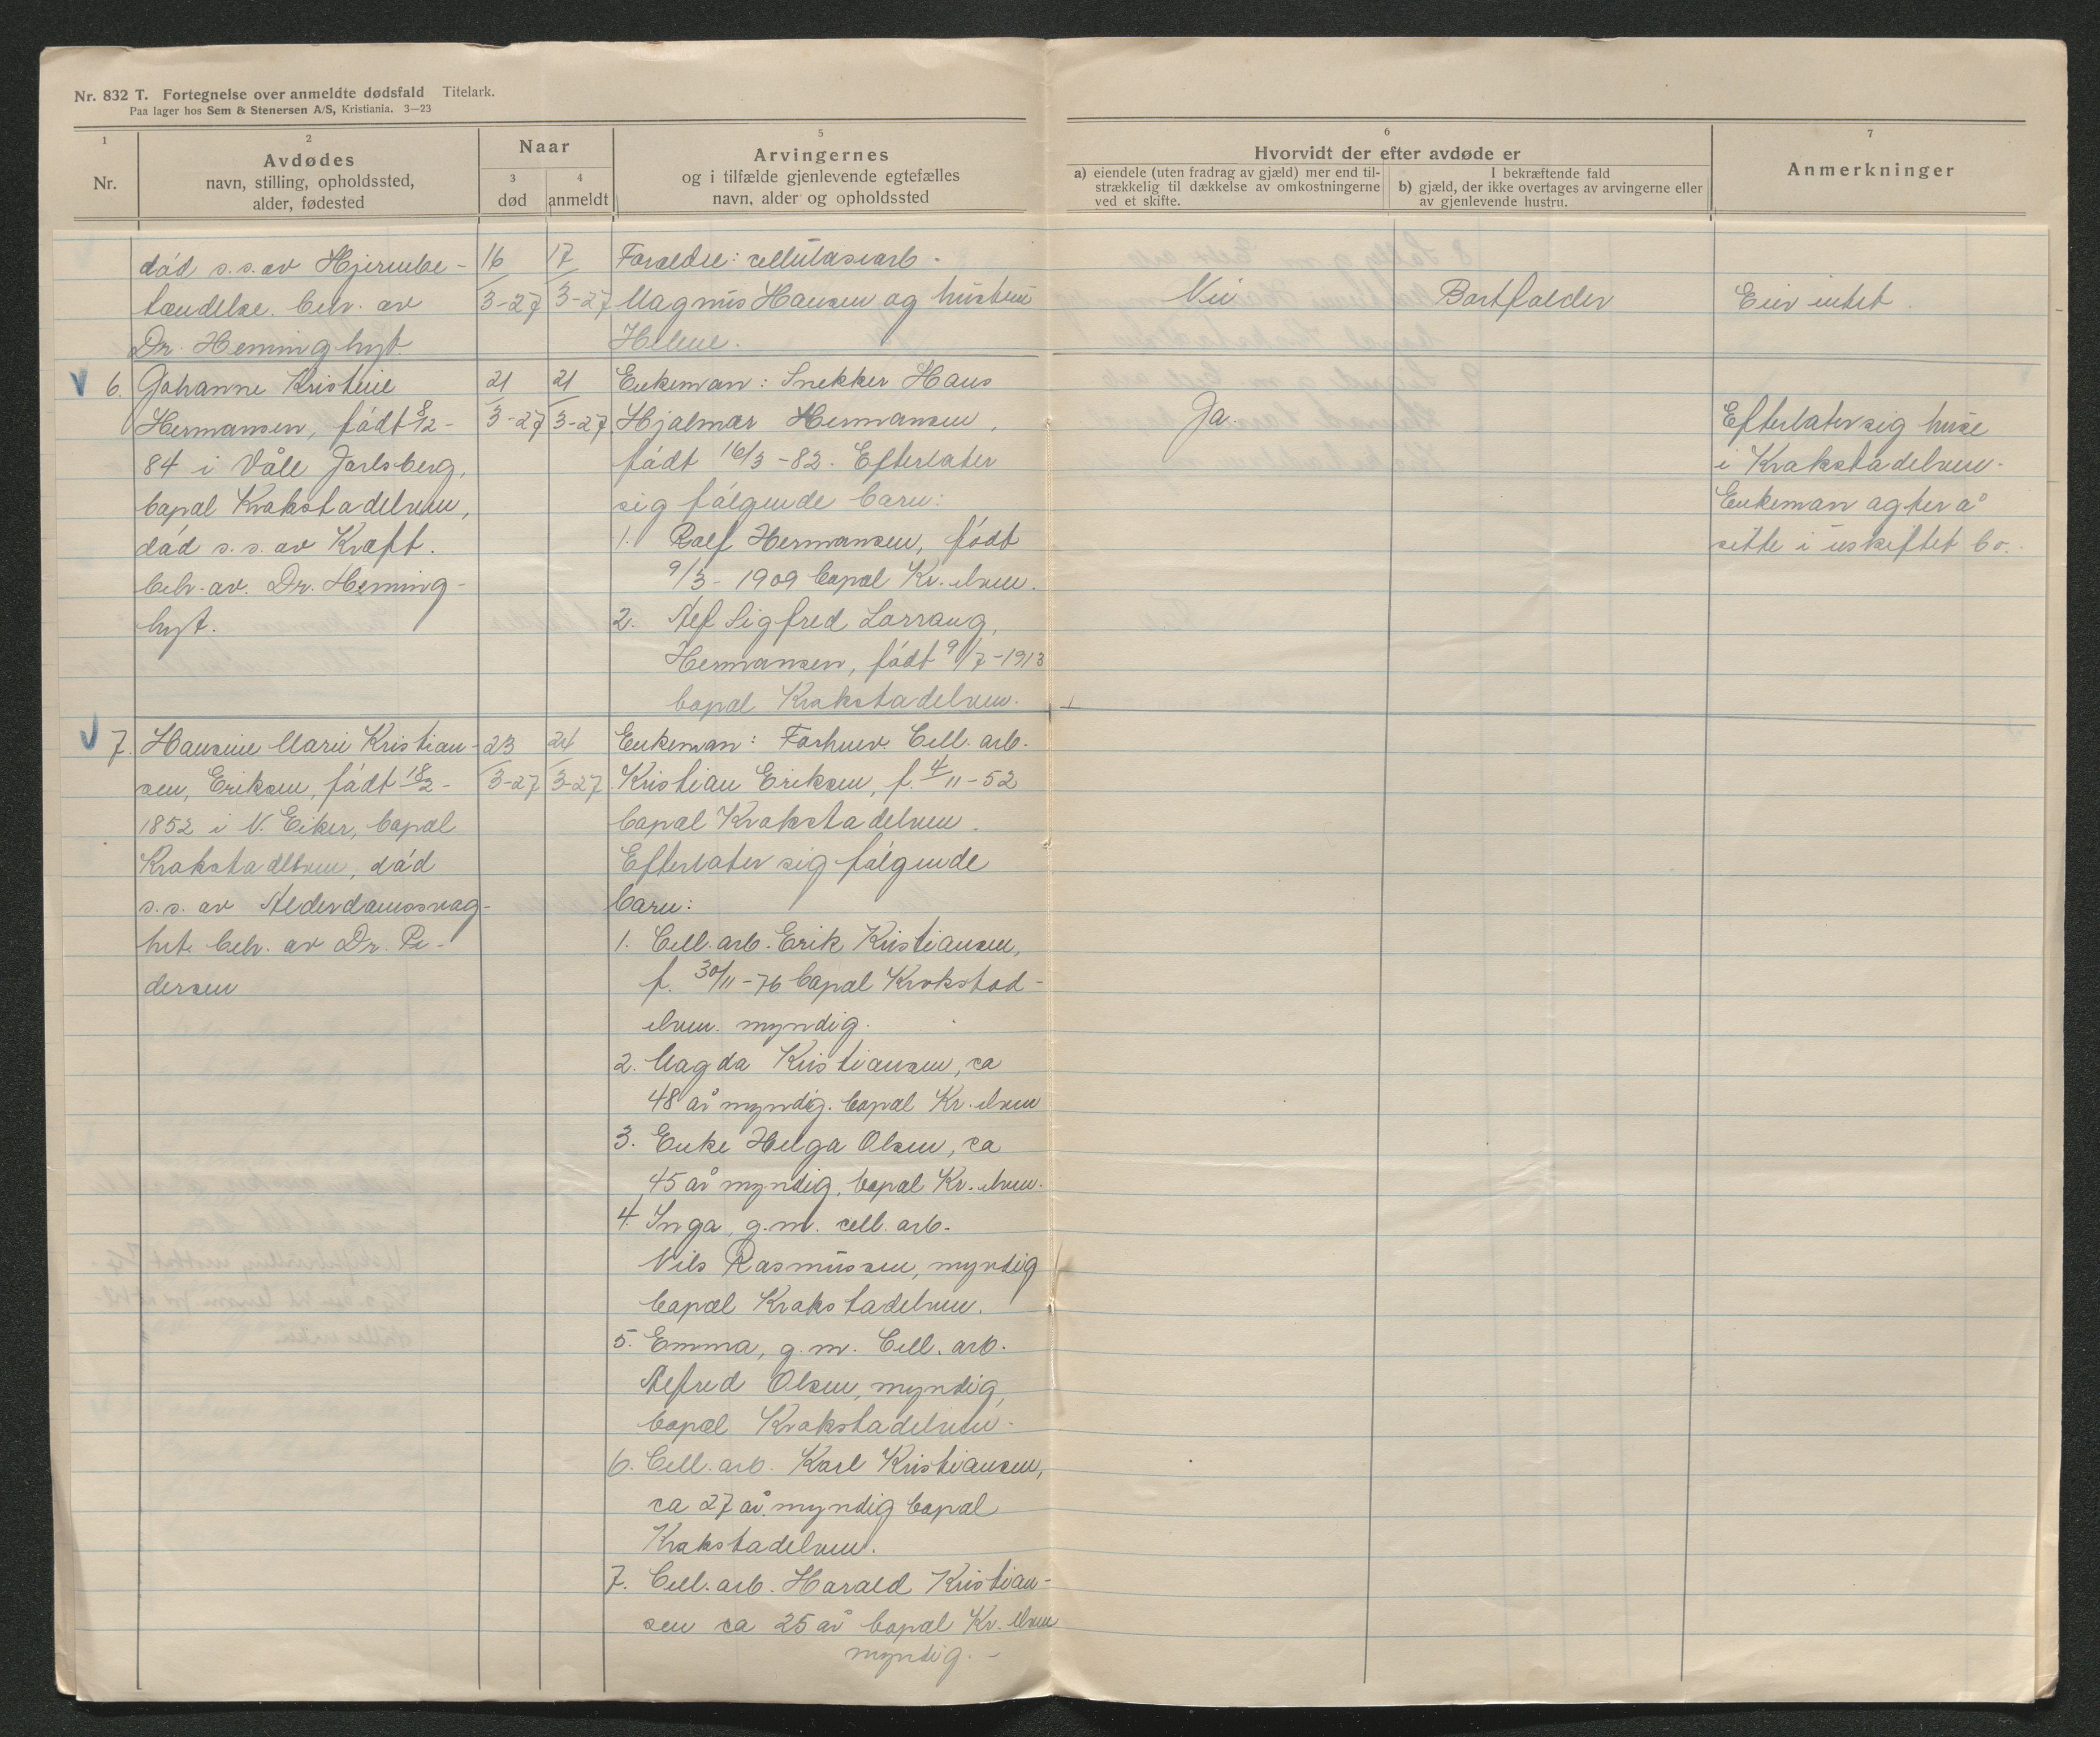 Nr. 832 T. Fortegnelse over anmeldte dødsfald Titelark.
Paa lager hos Sem & Stenersen A/S, Kristiania. 3—23
1
Nr.
2
Avdødes
navn, stilling, opholdssted,
alder, fødested
Naar
3
død
4
anmeldt
5
Arvingernes
og i tilfælde gjenlevende egtefælles
navn, alder og opholdssted
6
Hvorvidt der efter avdøde er
a) eiendele (uten fradrag av gjæld) mer end til-
strækkelig til dækkelse av omkostningerne
ved et skifte.
I bekræftende fald
b) gjæld, der ikke overtages av arvingerne eller
av gjenlevende hustru.
7
Anmerkninger
død s.s. av Hjernebe-
tændelse. beh. av
Dr. Heminghyt.
16/3-27
17/3-27
Forældre: cellulosearb.
Magnus Hansen og hustru
Helene.
Nei
Bortfalder
Eier intet.
V 6. Johanne Kristine
Hermansen, født 8/12-
84 i Våle Jarlsberg,
bopæl Krokstadelven,
død s.s. av Kræft.
beh. av. Dr. Heming-
hyt.
21/3-27
21/3-27
Enkeman: Snekker Hans
Hjalmar Hermansen,
født 16/3-82. Efterlater
sig følgende barn:
1. Rolf Hermansen, født
9/3-1909 bopæl Kr. elven.
2. Alf Sigfred
Hermansen, født 9/7-1913
bopæl Krokstadelven.
Ja.
Efterlater sig huse
i Krokstadelven.
Enkeman agter å
sitte i uskiftet bo.
V 7. Hansine Marie Kristian-
sen, Eriksen, født 18/2-
1852 i N. Eiker, bopæl
Krokstadelven, død
s.s. av Alderdomssvag-
het. beh. av Dr. Pe-
dersen
23/3-27
24/3-27
Enkeman: Forhenv. Cell. arb.
Kristian Eriksen, f. 4/11-52
bopæl Krokstadelven.
Efterlater sig følgende
barn:
1. Cell. arb. Erik Kristiansen,
f. 30/11-76 bopæl Krokstad-
elven. myndig.
2. Magda Kristiansen, ca
48 år myndig. bopæl Kr. elven
3. Enke Helga Olsen, ca
45 år myndig, bopæl Kr. elven.
4. Inga, g.m. cell. arb.
Nils Rasmussen, myndig
bopæl Krokstadelven.
5. Emma, g.m. Cell. arb.
Alfred Olsen, myndig,
bopæl Krokstadelven.
6. Cell. arb. Karl Kristiansen,
ca 27 år, myndig bopæl
Krokstadelven.
7. Cell. arb. Harald Kristian-
sen ca 25 år bopæl Kr. elven
myndig. -